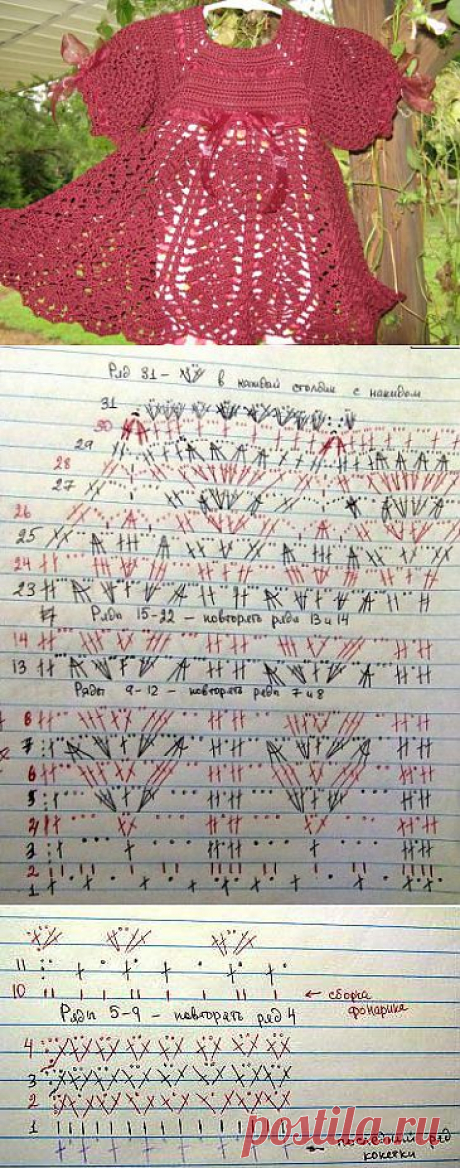 Ряд 31 - в каждый столбик с накидом
31
30
29
28
27
26
25
24
23
Ряды 15-22 - повторять ряды 13 и 14
14
13
Ряды 9-12 - повторять ряды 7 и 8
8
7
6
5
4
3
2
1
11
10 ← сборка
фонарика
Ряды 5-9 - повторять ряд 4
4
3
2
1
последний ряд
кокетки
postila.ru